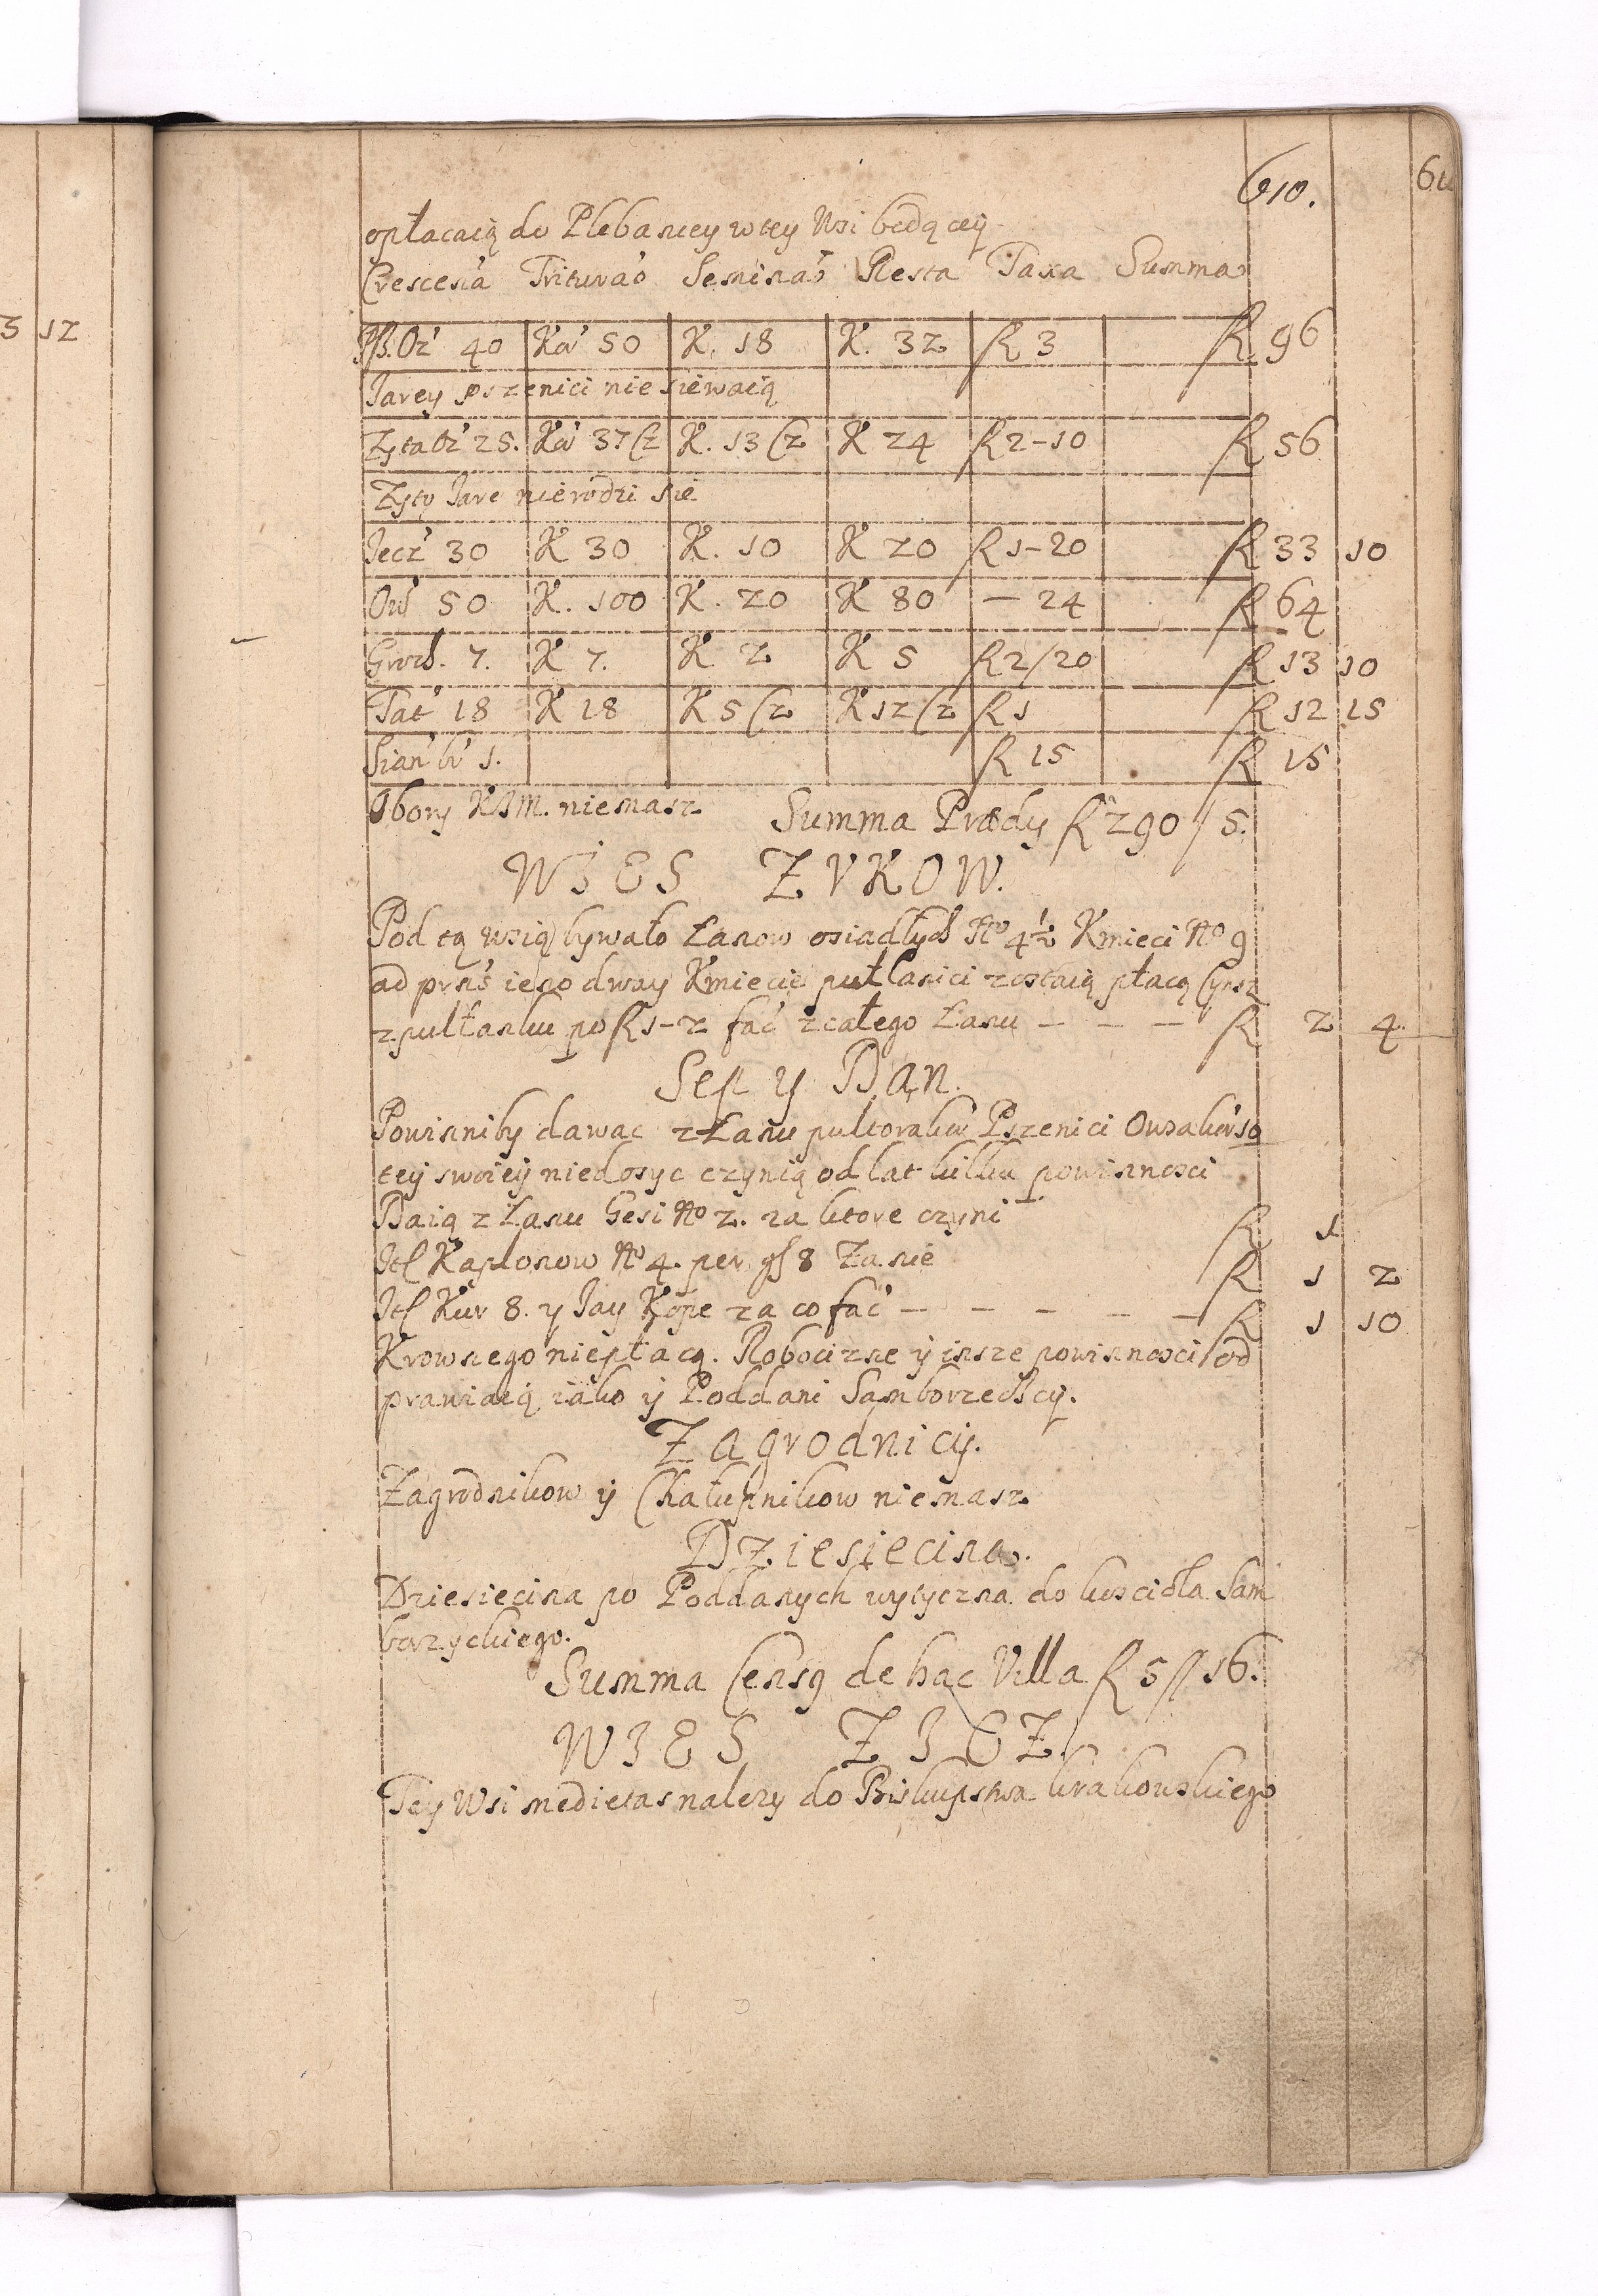 610.
opłacaią do Plebaniey wtey Wsi bedącey
Crescen̄a Triturāo Semināo Resta Taxa Summa
Psz. Oź 40 Kŏ 50 K. 18 K. 32 R 3 R 96
Jarey pszenici nie siewaią
Zyta Oź 25. Kŏ 37(2 K. 13(2 K 24 R 2-10 R 56
Zyto Jare nierodzi sie
Jecź 30 K 30 K. 10 K 20 R 1-20 R 33 10
Oẃ 50 K. 100 K. 20 K 80 - 24 R 64
Groch. 7. K 7. K 2 K 5 R 2/20 R 13 10
Tat́ 18 K 18 K 5(2 K 12(2 R 1 R 12 15
Sian 1. R 15 R 15
Obory niemasz Summa Prædy R 290/5.
WIES ZUKOW.
Pod tą wsią bywało Łanow osiadłych No 4½ Kmieci No 9
ad prńs iedno dway Kmiecie pułłanici zostaią płacą Cynsz
z pułłanku po R 1-2 fać zcałego Łanu - - - R 2 4
Sep y Dan.
Powinniby dawac z Łanu pułtorakow Pszenici Owsa kor 10
tey swoiey niedosyc czynią od lat kilku powinnosci
Daią z Łanu Gesi No 2. za ktore czyni R 1
Itl Kapłonow No 4. per gl 8 Za nie R 1 2
Itl Kur 8. y Jay Kope za co fać - - - - - R 1 10
Krownego niepłacą. Robocizne ÿ insze powinnosci od
prawiaią iako ÿ Poddani Samborzecscy.
Zagrodnicy.
Zagrodnikow ÿ Chałupnikow niemasz
Dziesiecina.
Dziesiecina po Poddanych wytyczna do koscioła Sam
borzyckiego.
Summa Censg de hac Villa R 5//16.
WIES
Tey Wsi medietas nalezy do Biskupstwa krakowskiego
3 12